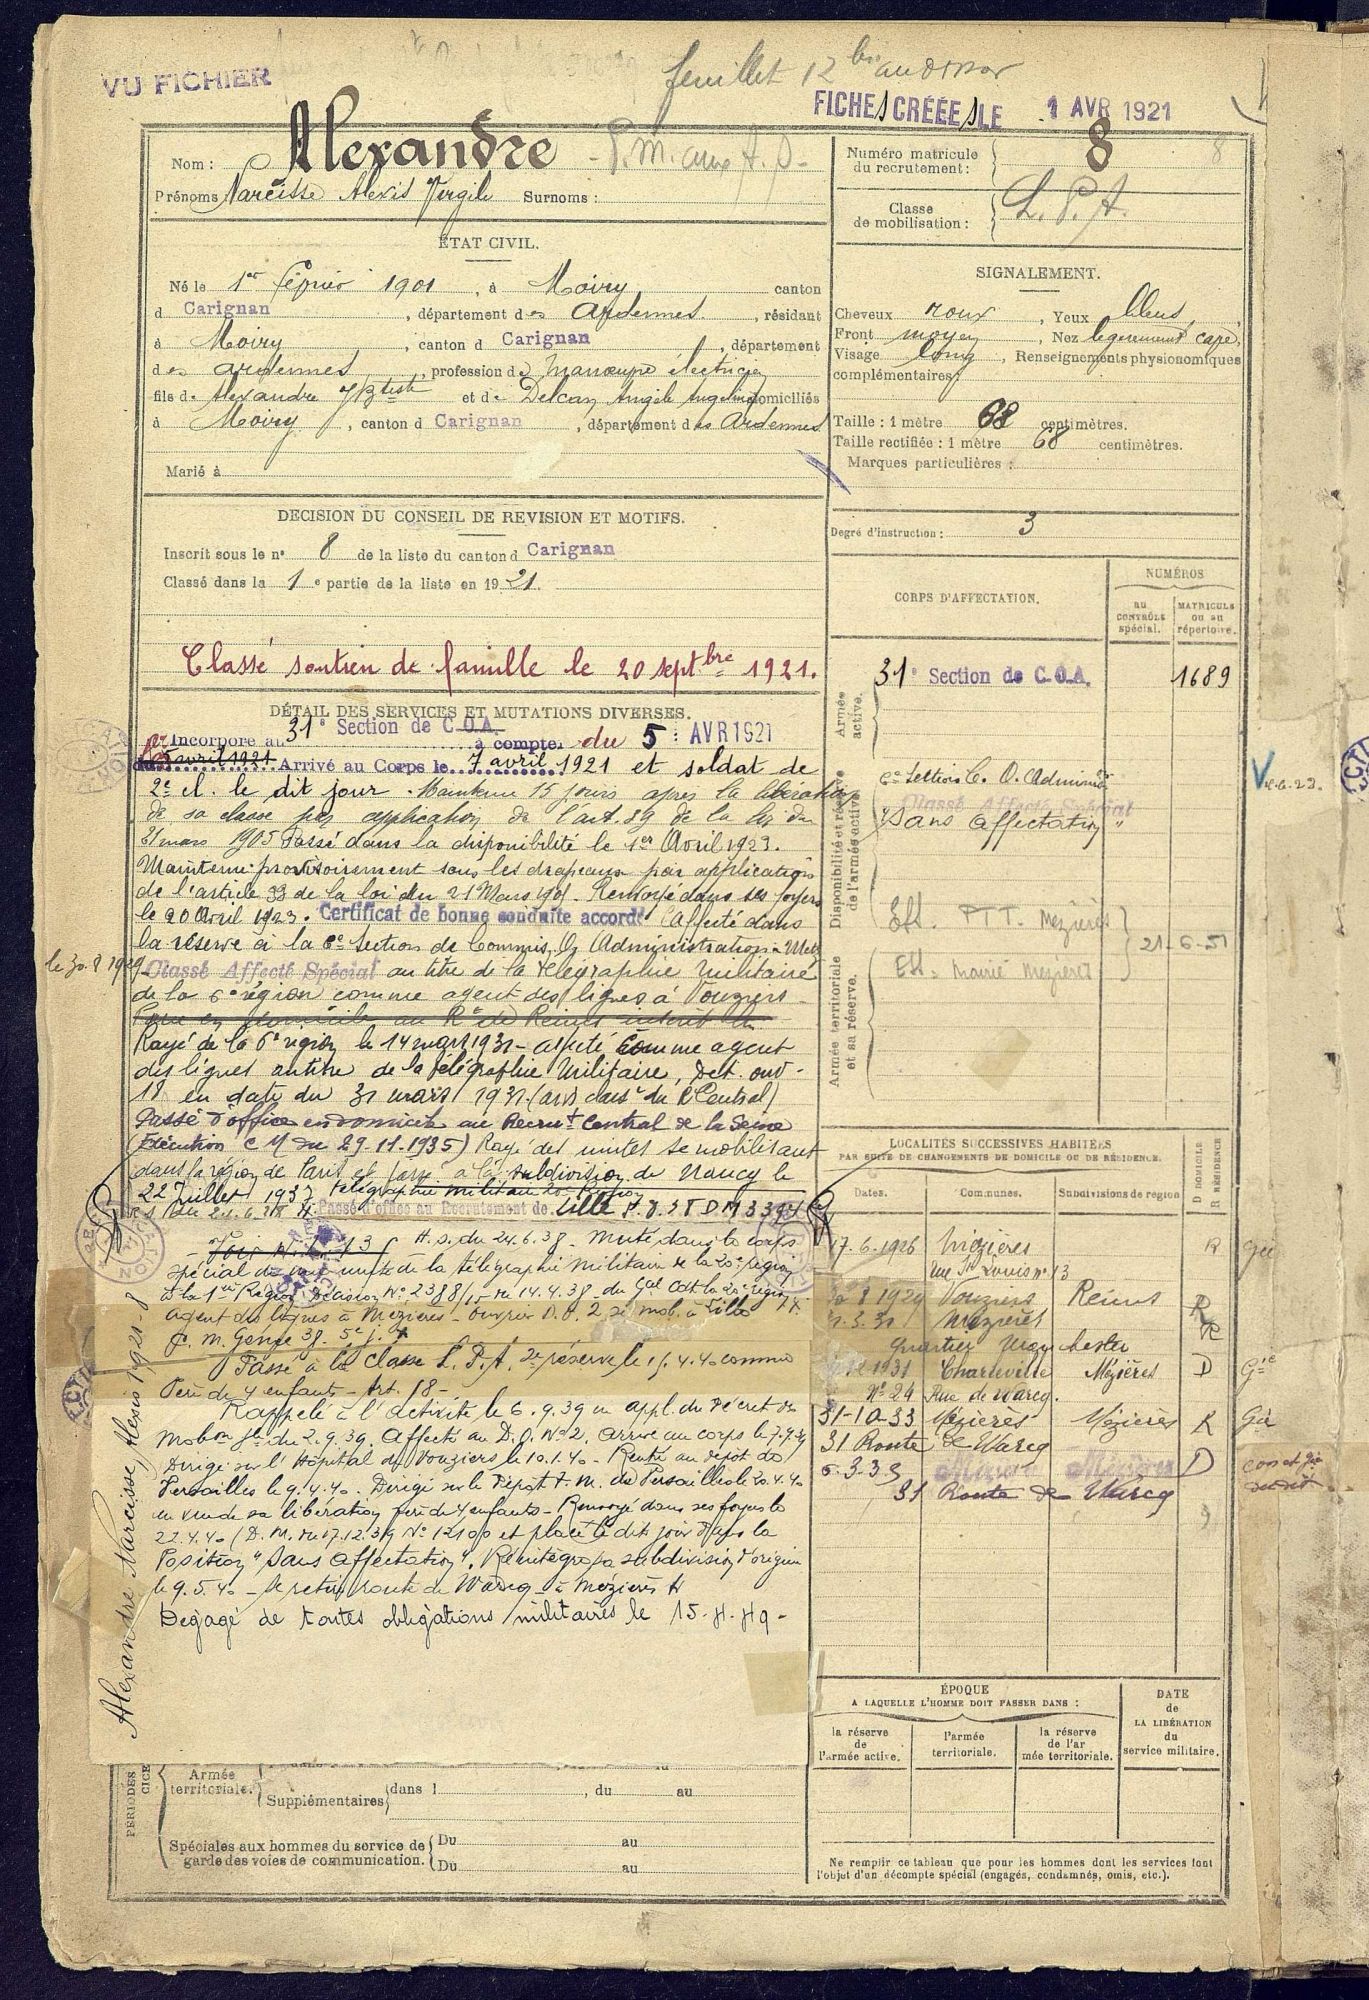 feuillet 12 bis au dossier
VU FICHIER
FICHES CRÉÉES LE 1 AVR 1921
Nom : Alexandre
Prénoms Narcisse Alexis Vergile Surnoms :
Numéro matricule du recrutement : 8
Classe de mobilisation : L. P. A.
ÉTAT CIVIL.
Né le 1er février 1901, à Moiry canton
d Carignan, département des Ardennes, résidant
à Moiry, canton d Carignan, département
des Ardennes, profession de Manœuvre électricien
fils de Alexandre J Btiste et de Angèle Angeline domiciliés
à Moiry, canton d Carignan, département des Ardennes
Marié à
SIGNALEMENT.
Cheveux roux, Yeux bleus
Front moyen, Nez légèrement cave,
Visage long, Renseignements physionomiques
complémentaires :
Taille : 1 mètre 68 centimètres.
Taille rectifiée : 1 mètre 68 centimètres.
Marques particulières :
Degré d'instruction : 3
DECISION DU CONSEIL DE REVISION ET MOTIFS.
Inscrit sous le n° 8 de la liste du canton d Carignan
Classé dans la 1e partie de la liste en 1921.
Classé soutien de famille le 20 septbre 1921.
CORPS D'AFFECTATION.
NUMÉROS
AU CONTRÔLE spécial.
MATRICULE ou au répertoire.
Armée active.
31e Section de C.O.A. 1689
Disponibilité et réserve de l'armée active.
6e Section C. O. Admion
Classé Affecté Spécial
"Sans affectation"
Aff. PTT. Mezières
Aff. Mairie Mezières
21-6-51
Armée territoriale et sa réserve.
DÉTAIL DES SERVICES ET MUTATIONS DIVERSES.
Incorporé au 31e Section de C.O.A.
à compter du 5 AVR 1921
5 avril 1921 Arrivé au Corps le 7 avril 1921 et soldat de
2e cl. le dit jour. Maintenu 15 jours après la libération
de sa classe par application de l'art. 39 de la loi du
21 mars 1905 Passé dans la disponibilité le 1er Avril 1923.
Maintenu provisoirement sous les drapeaux par application
de l'article 33 de la loi du 21 Mars 1905. Renvoyé dans ses foyers
le 20 Avril 1923. Certificat de bonne conduite accordé Affecté dans
la réserve à la 6e Section de Commis Oers Administration - Metz
le 30.8.1929 Classé Affecté Spécial au titre de la télégraphie militaire
de la 6e région comme agent des lignes à Vouziers
Passé en domicile au Rt de Reims
Rayé de la 6e région le 14 mars 1931 - affecté comme agent
des lignes au titre de la télégraphie Militaire, Det. ouv.
18 en date du 31 mars 1931
Passé d'office en domicile au Recrut Central de la Seine
(Exécution C M du 29.11.1935) Rayé des unités se mobilisant
dans la région de Paris et passé à la subdivision de Nancy le
22 Juillet 1937 télégraphie militaire 20e Région
Passé d'office au Recrutement de Lille
R.S. du 24.6.38 - Muté dans le corps
spécial de la télégraphie militaire de la 20e région
à la 1ère Région décision N° 2388/ du 14.4.38 du Gal Cdt la 20e région
agent des lignes à Mezières - ouvrier D.O. 2 mob. à Lille
Passé à la Classe L.P.A. 2e réserve le 15.4.40 comme
Père de 4 enfants - Art. 18 -
Rappelé à l'activité le 6.9.39 en appl. du Décret de
Mobon Gle du 2.9.39. Affecté au D.O. N°2. arrivé au corps le 7.9.39
Dirigé sur l'Hôpital de Vouziers le 10.1.40 - Rentré au dépôt de
Versailles le 9.4.40. Dirigé sur le Dépôt T.M. de Versailles le 20.4.40
en vue de sa libération père de 4 enfants - Renvoyé dans ses foyers le
22.4.40 (D.M. du 17.12.39 N° 12100 et placé le dit jour dans la
Position "Sans affectation". Réintègre sa subdivision d'origine
le 9.5.40 - Se retire route de Warcq - à Mézières
Dégagé de toutes obligations militaires le 15-4-49 -
Alexandre Narcisse, Alexis 1921 - 8
LOCALITÉS SUCCESSIVES HABITÉES
PAR SUITE DE CHANGEMENTS DE DOMICILE OU DE RÉSIDENCE.
Dates. Communes. Subdivisions de région D DOMICILE R RÉSIDENCE
17.6.1926 Mézières R
rue St Louis n° 13
8 1929 Vouziers Reims R
31 Mezières R
Quartier
1931 Charleville Mézières D
N° 24 Rue de Warcq.
31-10-33 Mézières Mézières R
31 Route de Warcq
6.3.39 Mézières Mézières D
31 Route de Warcq
ÉPOQUE
A LAQUELLE L'HOMME DOIT PASSER DANS :
la réserve de l'armée active.
l'armée territoriale.
la réserve de l'armée territoriale.
DATE de LA LIBÉRATION du service militaire.
PÉRIODES
Armée territoriale. Supplémentaires dans l , du au
Spéciales aux hommes du service de garde des voies de communication. Du au
Du au
Ne remplir ce tableau que pour les hommes dont les services font
l'objet d'un décompte spécial (engagés, condamnés, omis, etc.).